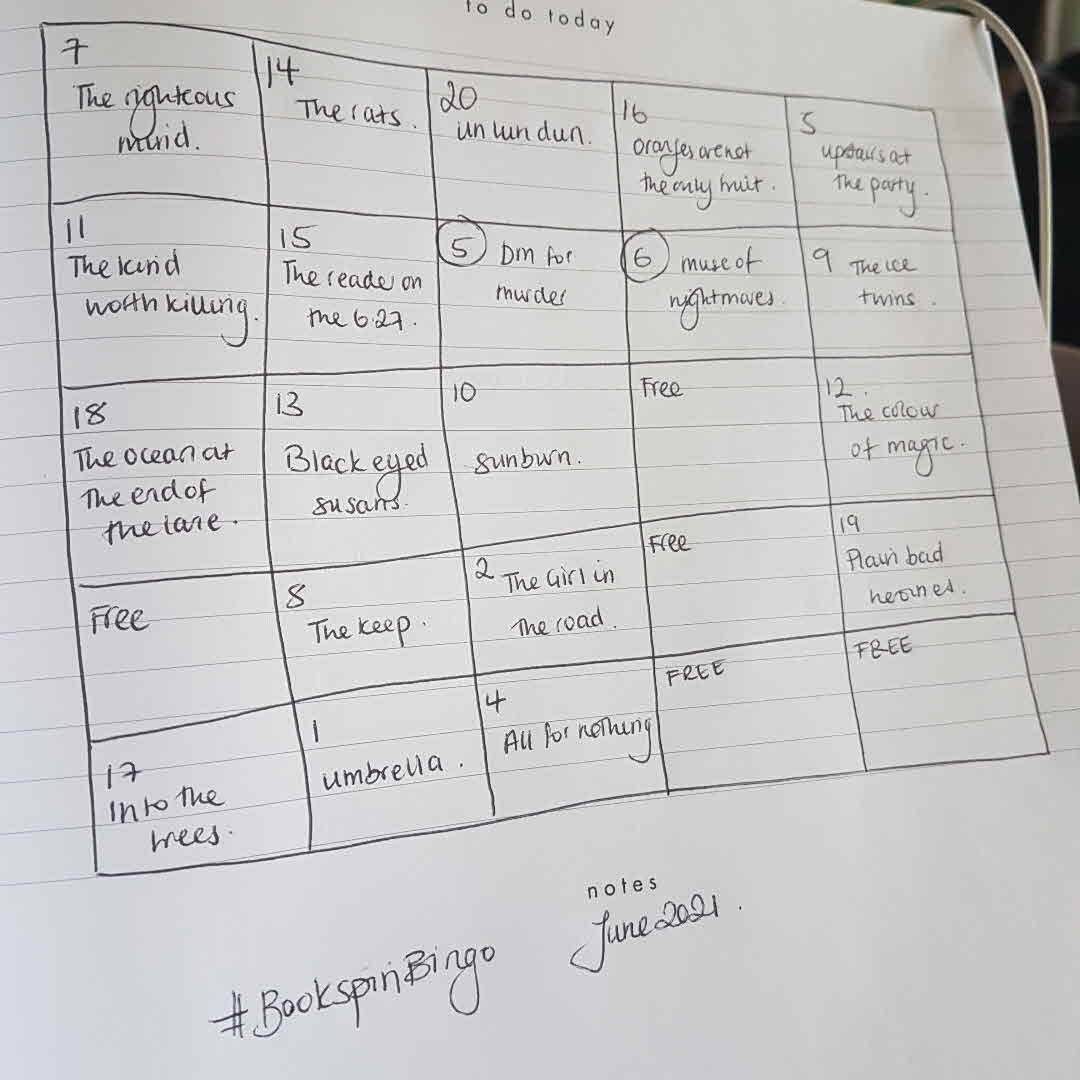 to do today
7
The righteous
mind.
14
The rats.
20
un lun dun.
16
oranges are not
the only fruit.
5
upstairs at
the party.
11
The kind
worth killing.
15
The reader on
the 6.27.
5 Dm for
murder
6 muse of
nightmares.
9 The ice
twins.
18
The ocean at
The end of
the lane.
13
Black eyed
susans.
10
sunburn.
Free
12.
The colour
of magic.
Free
8
The keep.
2 The Girl in
The road.
Free
19
Plain bad
heroines.
17
Into the
trees.
1
umbrella.
4
All for nothing
FREE
FREE
notes
June 2021.
#BookspinBingo